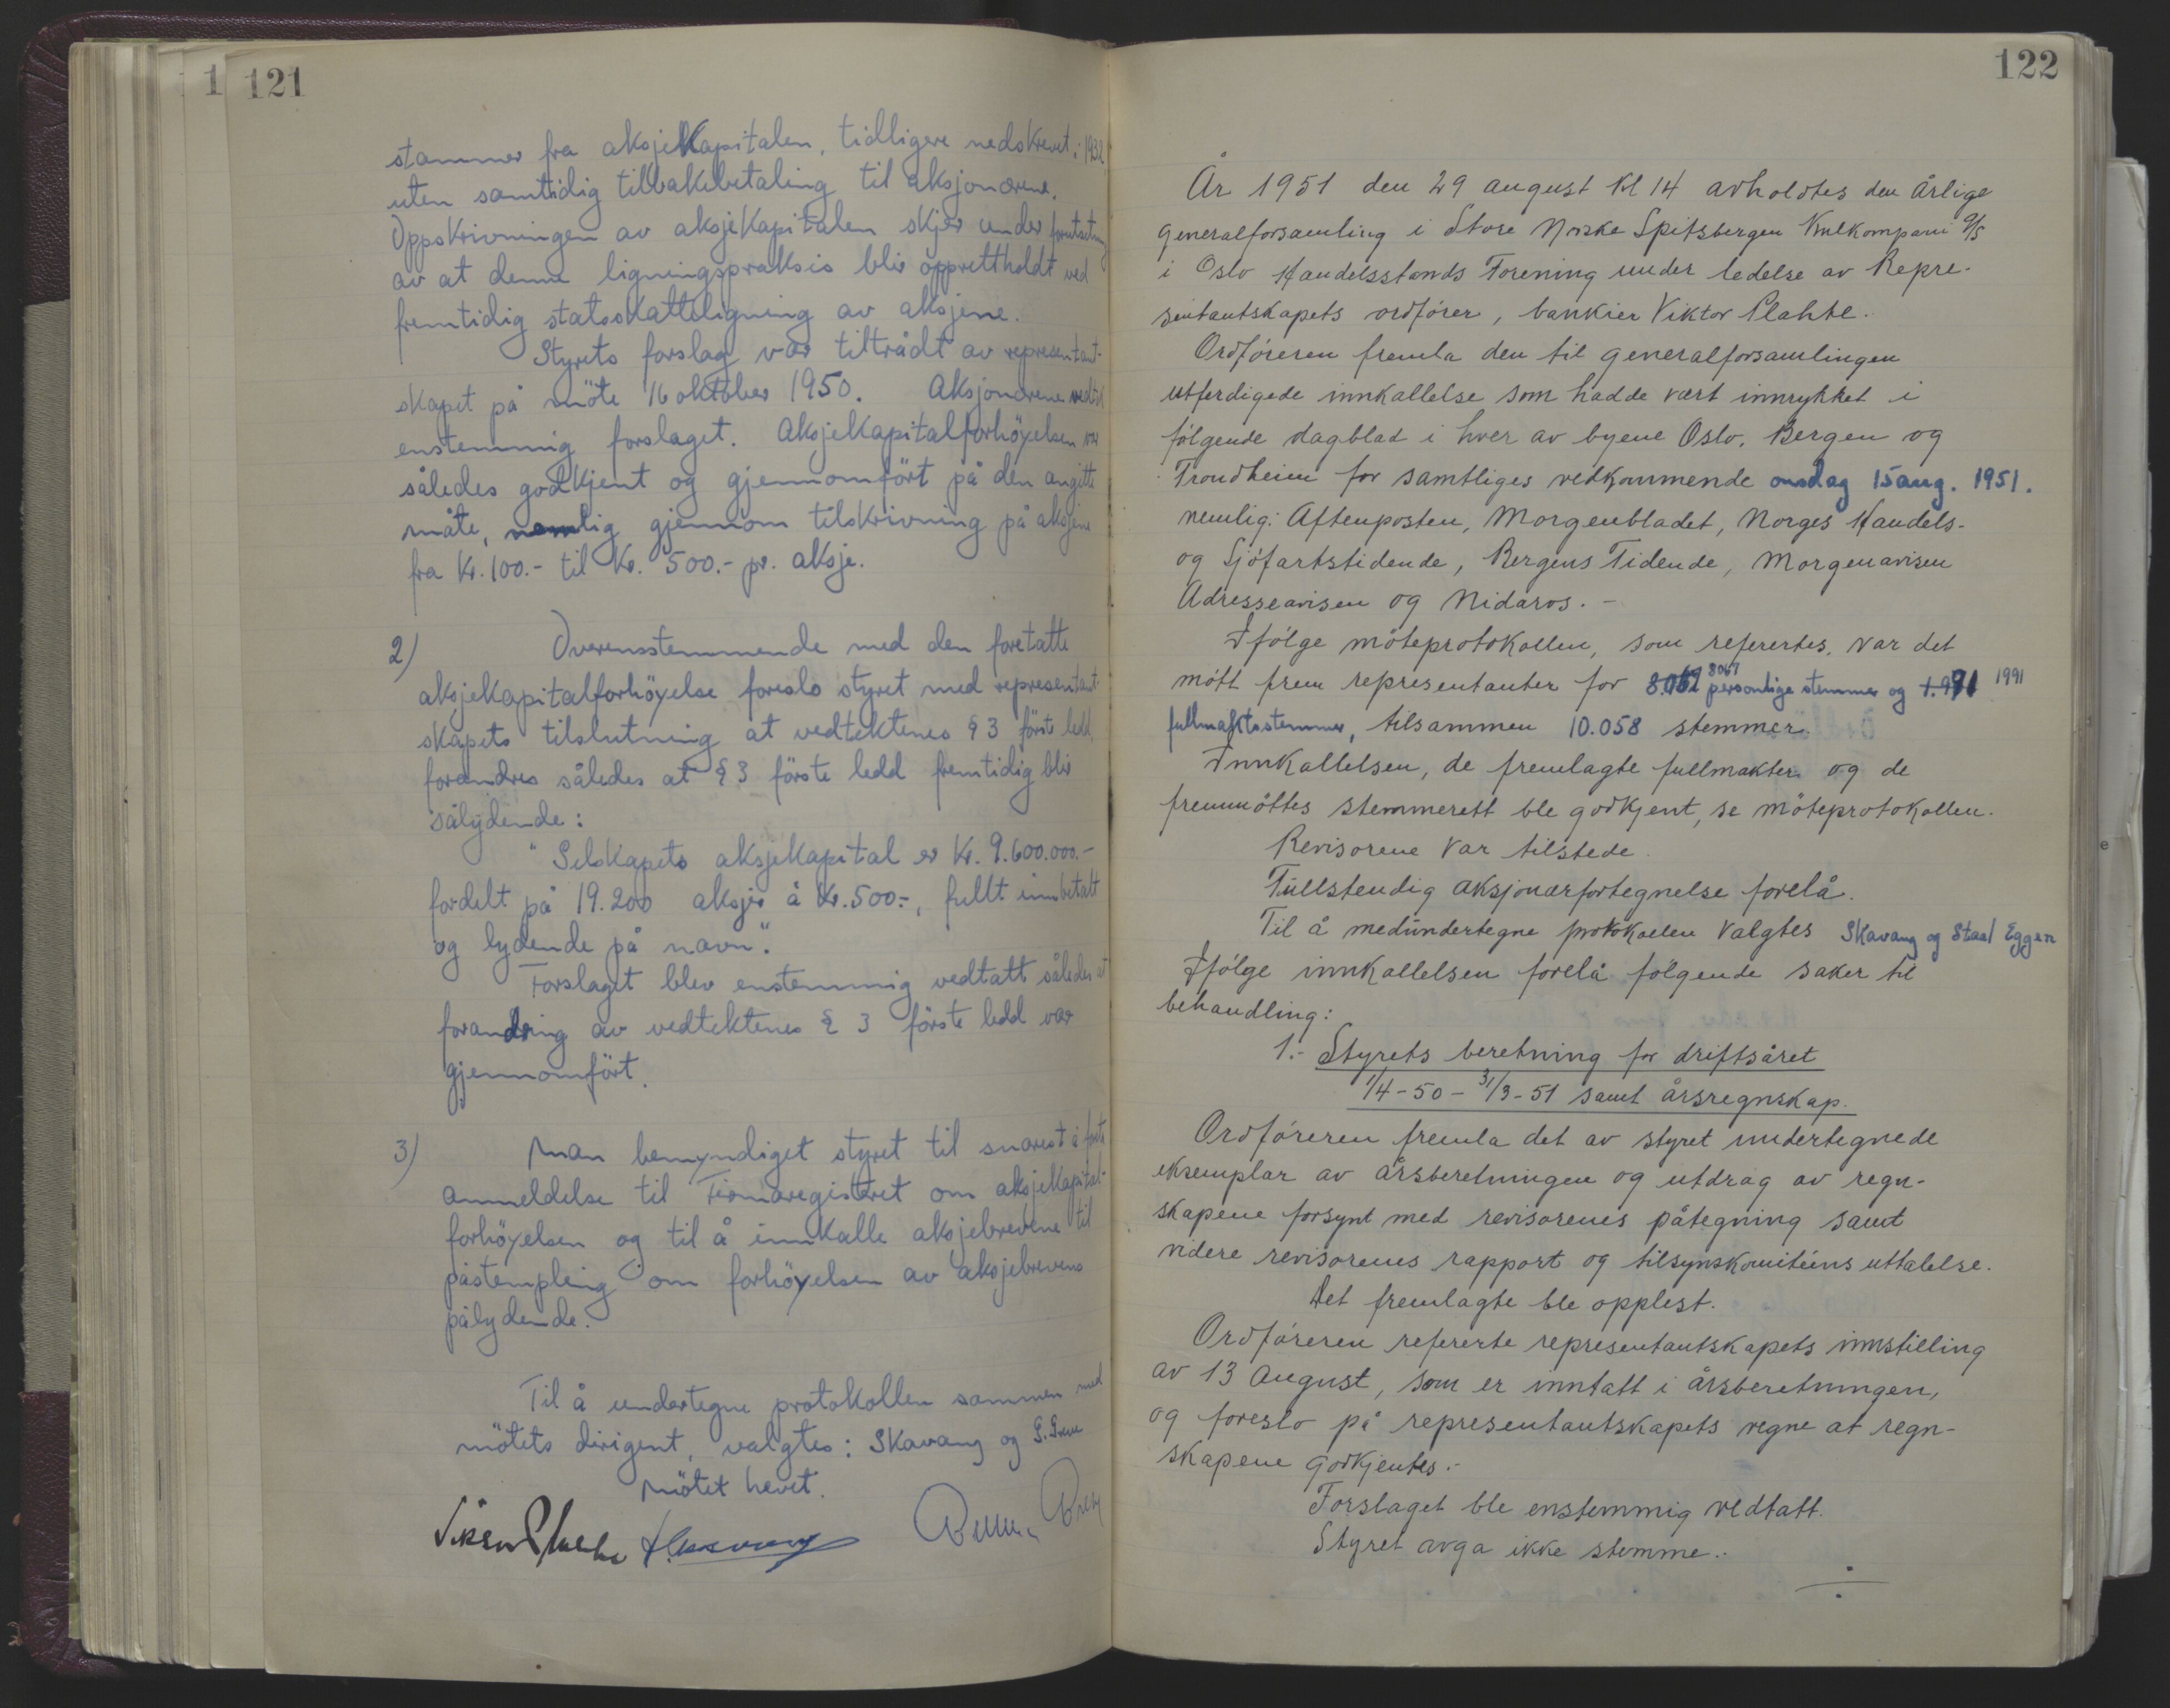 121
stammer fra aksjekapitalen, tidligere nedskrevet i 1932
uten samtidig tilbakebetaling til aksjonærene.
Oppskrivningen av aksjekapitalen skjer under forutsetning
av at denne ligningspraksis blir opprettholdt ved
fremtidig statsskatteligning av aksjene.
Styrets forslag var tiltrådt av representant-
skapet på möte 16 oktober 1950. Aksjonærene vedtok
enstemmig forslaget. Aksjekapitalforhöyelsen var
således godkjent og gjennomfört på den angitte
måte, nemlig gjennom tilskrivning på aksjene
fra kr. 100.- til kr. 500.- pr. aksje.
2) Overensstemmende med den foretatte
aksjekapitalforhöyelse foreslo styret med representant-
skapets tilslutning at vedtektenes § 3 förste ledd
forandres således at § 3 förste ledd fremtidig blir
sålydende:
"Selskapets aksjekapital er kr. 9.600.000.-
fordelt på 19.200 aksjer å kr. 500.-, fullt innbetalt
og lydende på navn".
Forslaget blev enstemmig vedtatt således at
forandring av vedtektenes § 3 förste ledd var
gjennomfört.
3) Man bemyndiget styret til snarest å foreta
anmeldelse til Firmaregisteret om aksjekapital-
forhöyelsen og til å innkalle aksjebrevene til
påstempling om forhöyelsen av aksjebrevens
pålydende.
Til å undertegne protokollen sammen med
mötets dirigent, valgtes: Skavang og
Mötet hevet.
122
År 1951 den 29 august kl 14 avholdtes den årlige
generalforsamling i Store Norske Spitsbergen Kulkompani A/S
i Oslo Handelsstands Forening under ledelse av Repre-
sentantskapets ordförer, bankier Viktor Plahte.
Ordföreren fremla den til generalforsamlingen
utferdigede innkallelse som hadde vært innrykket i
fölgende dagblad i hver av byene Oslo, Bergen og
Trondheim for samtliges vedkommende onsdag 15 aug. 1951.
nemlig: Aftenposten, Morgenbladet, Norges Handels-
og Sjöfartstidende, Bergens Tidende, Morgenavisen
Adresseavisen og Nidaros. -
Ifölge möteprotokollen, som refertes, var det
mött frem representanter for 8067 personlige stemmer og 1.991 1991
fullmaktsstemmer, tilsammen 10.058 stemmer.
Innkallelsen, de fremlagte fullmakter og de
fremmöttes stemmerett ble godkjent, se möteprotokollen.
Revisorene var tilstede.
Fullstendig aksjonærfortegnelse forelå.
Til å medundertegne protokollen valgtes Skavang og Staal Eggen
Ifölge innkallelsen forelå fölgende saker til
behandling:
1.- Styrets beretning for driftsåret
1/4-50 - 31/3-51 samt årsregnskap.
Ordföreren fremla det av styret undertegnede
eksemplar av årsberetningen og utdrag av regn-
skapene forsynt med revisorenes påtegning samt
videre revisorenes rapport og tilsynskomitéens uttalelse.
Det fremlagte ble opplest.
Ordföreren refererte representantskapets innstilling
av 13 August, som er inntatt i årsberetningen,
og foreslo på representantskapets vegne at regn-
skapene godkjentes.-
Forslaget ble enstemmig vedtatt.
Styret avga ikke stemme.-